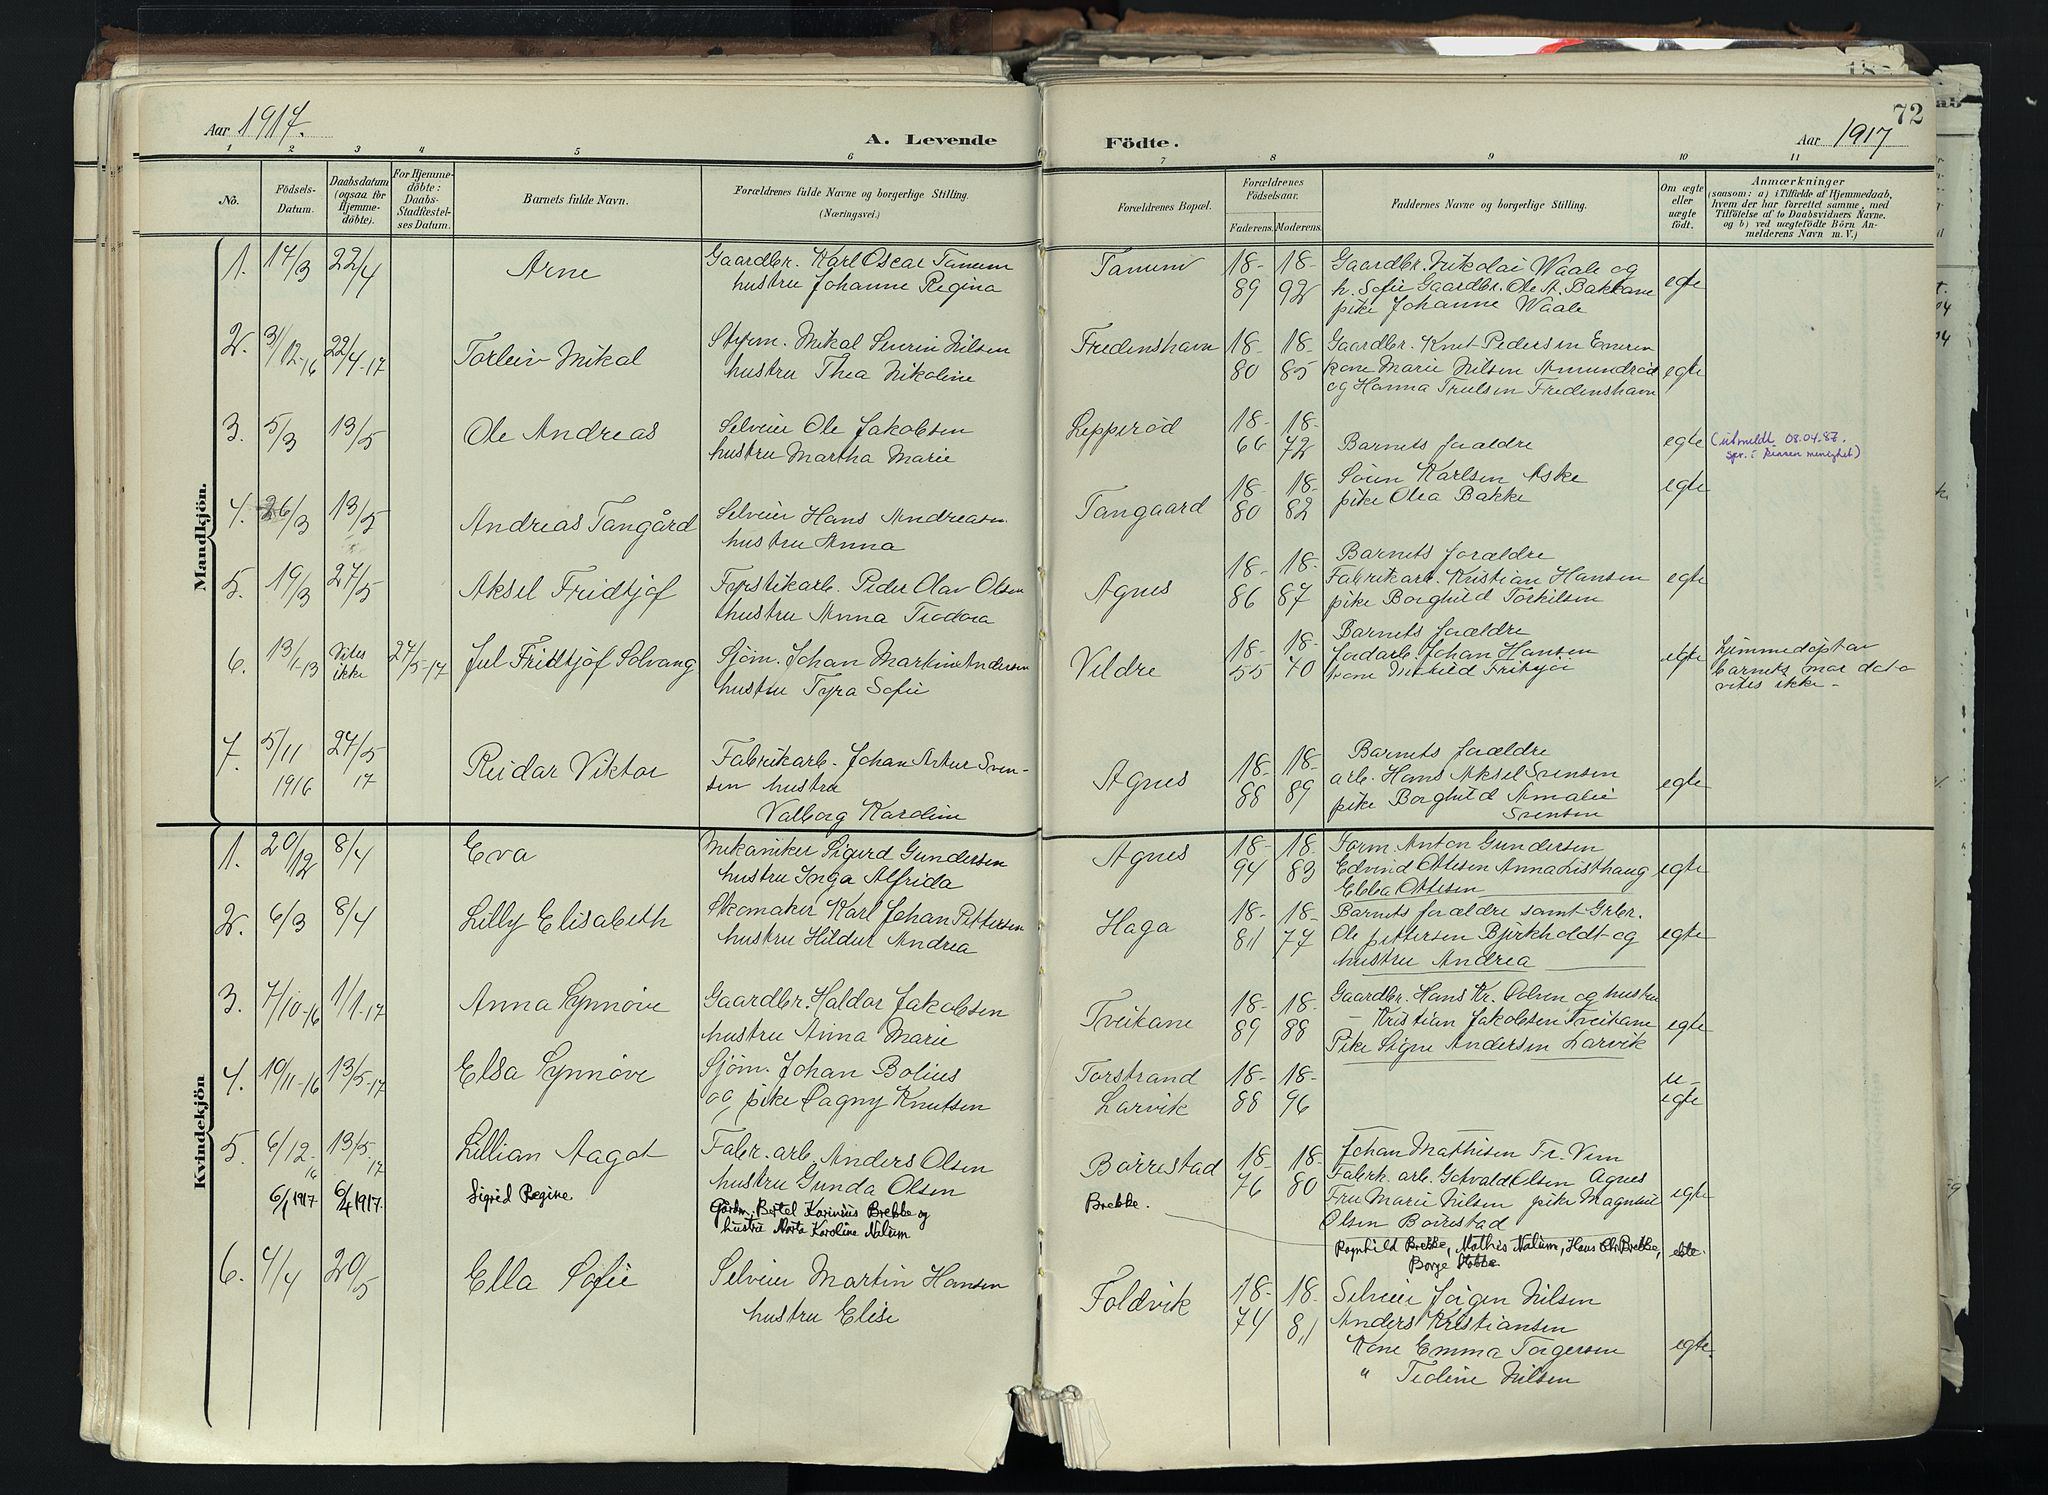 Aar 1917.
A. Levende
Födte.
72
Aar 1917
1 2 3 4 5 6 7 8 9 10 11
No.
Födsels-
Datum.
Daabsdatum
(ogsaa for
Hjemme-
döbte).
For Hjemme-
döbte:
Daabs-
Stadfæstel-
ses Datum.
Barnets fulde Navn.
Forældrenes fulde Navne og borgerlige Stilling.
(Næringsvei.)
Forældrenes Bopæl.
Forældrenes
Födselsaar.
Faderens. Moderens.
Faddernes Navne og borgerlige Stilling.
Om ægte
eller
uægte
födt.
Anmærkninger
(saasom: a) i Tilfælde af Hjemmedaab,
hvem der har forrettet samme, med
Tilföielse af to Daabsvidners Navne.
og b) ved uægtefödte Börn An-
melderens Navn m. V.)
Mandkjön.
1. 17/3 22/4 Arne
Gaardbr. Karl Oscar Tanum
hustru Johanne Regina
Tanum
18-89 18-92
Gaardbr. Nikolai Waale og
h. Sofie Gaardbr. Ole A. Bakkane
pike Johanne Waale
egte
2. 3/12-16 22/4-17 Torleiv Mikal
Styrm. Mikal Severin Nilsen
hustru Thea Nikoline
Fredenshavn
18-80 18-85
Gaardbr. Knut Pedersen
kone Marie Nilsen Amundrød
og Hanna Trulsen Fredenshavn
egte
3. 5/3 13/5 Ole Andreas
Selveier Ole Jakobsen
hustru Martha Marie
Lepperød
18-66 18-72
Barnets forældre
egte
(utmeldt 08.04.87.
menighet)
4. 26/3 13/5 Andreas Tangård
Selveier Hans Andreasen
hustru Anna
Tangaard
18-80 18-82
Søren Karlsen Aske
pike Olea Bakke
egte
5. 19/3 27/5 Aksel Fridtjof
Fyrstikarb. Peder Olav Olsen
hustru Anna Teodora
Agnes
18-86 18-87
Barnets forældre
Fabrikarb. Kristian Hansen
pike Borghild Torkilsen
egte
6. 13/1-13 Vites
ikke 27/5-17 Jul Fridtjof Solvang
Sjøm. Johan Martin Andersen
hustru Tyra Sofie
Vildre
18-55 18-70
Barnets forældre
Jordarb. Johan Hansen
kone
egte
Hjemmedøpt av
barnets mor dato
vites ikke -
7. 5/11 1916 27/5 17 Reidar Viktor
Fabrikarb. Johan Artur Sven-
sen hustru
Valborg Karoline
Agnes
18-88 18-89
Barnets forældre
arb. Hans Aksel Svensen
pike Borghild Amalie
Svensen
egte
Kvindekjön
1. 20/12 8/4 Eva
Mekaniker Sigurd Gundersen
hustru Inga Alfrida
Agnes
18-94 18 83
Form. Anton Gundersen
Edvind Ottesen Anna Listhaug
Ebba Ottesen
egte
2. 6/3 8/4 Lilly Elisabeth
Skomaker Karl Johan Pettersen
hustru Hildur Andrea
Haga
18-81 18-77
Barnets forældre samt Grbr.
Ole pettersen Bjerkholdt og
hustru Andrea
egte
3. 7/10-16 1/1-17 Anna Synnøve
Gaardbr. Haldor Jakobsen
hustru Anna Marie
Tveitane
18-89 18-88
Gaardbr. Hans Kr. Odven og hustru
- Kristian Jakobsen Tveitane
Pike Signe Andersen Larvik
egte
4. 19/11-16 13/5-17 Elsa Synnøve
Sjøm. Johan Bolius
og pike Dagny Knutsen
Torstrand
Larvik
18-88 18-96
u-
egte
5. 6/12-16 13/5-17 Lillian Aagot
Fabr. arb. Anders Olsen
hustru Gunda Olsen
Børrestad
18-76 18-80
Johan Mathisen Fr. Vern
Fabrk. arb. Gotvald Olsen Agnes
Fru Marie Nilsen pike Magnhil
Olsen Børrestad
egte
6/1 1917 6/4 1917. Sigrid Regine
Gårdm. Bertel Karinius Brekke og
hustru Marta Karoline Nalum
Brekke.
Ragnhild Brekke, Mathis Nalum, Hans Chr. Brekke,
Borge
ekte.
6. 4/4 20/5 Ella Sofie
Selveier Martin Hansen
hustru Elise
Foldvik
18-74 18-81
Selveier Jørgen Nilsen
Anders Kristiansen
Kone Emma Torgersen
" Tedine Nilsen
egte.